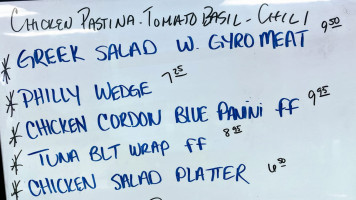 CHICKEN PASTINA - TOMATO BASIL - CHILI
* GREEK SALAD W. GYRO MEAT 9⁵⁰
* PHILLY WEDGE 7²⁵
* CHICKEN CORDON BLUE PANINI FF 9⁹⁵
* TUNA BLT WRAP FF 8⁹⁵
* CHICKEN SALAD PLATTER 6⁵⁰